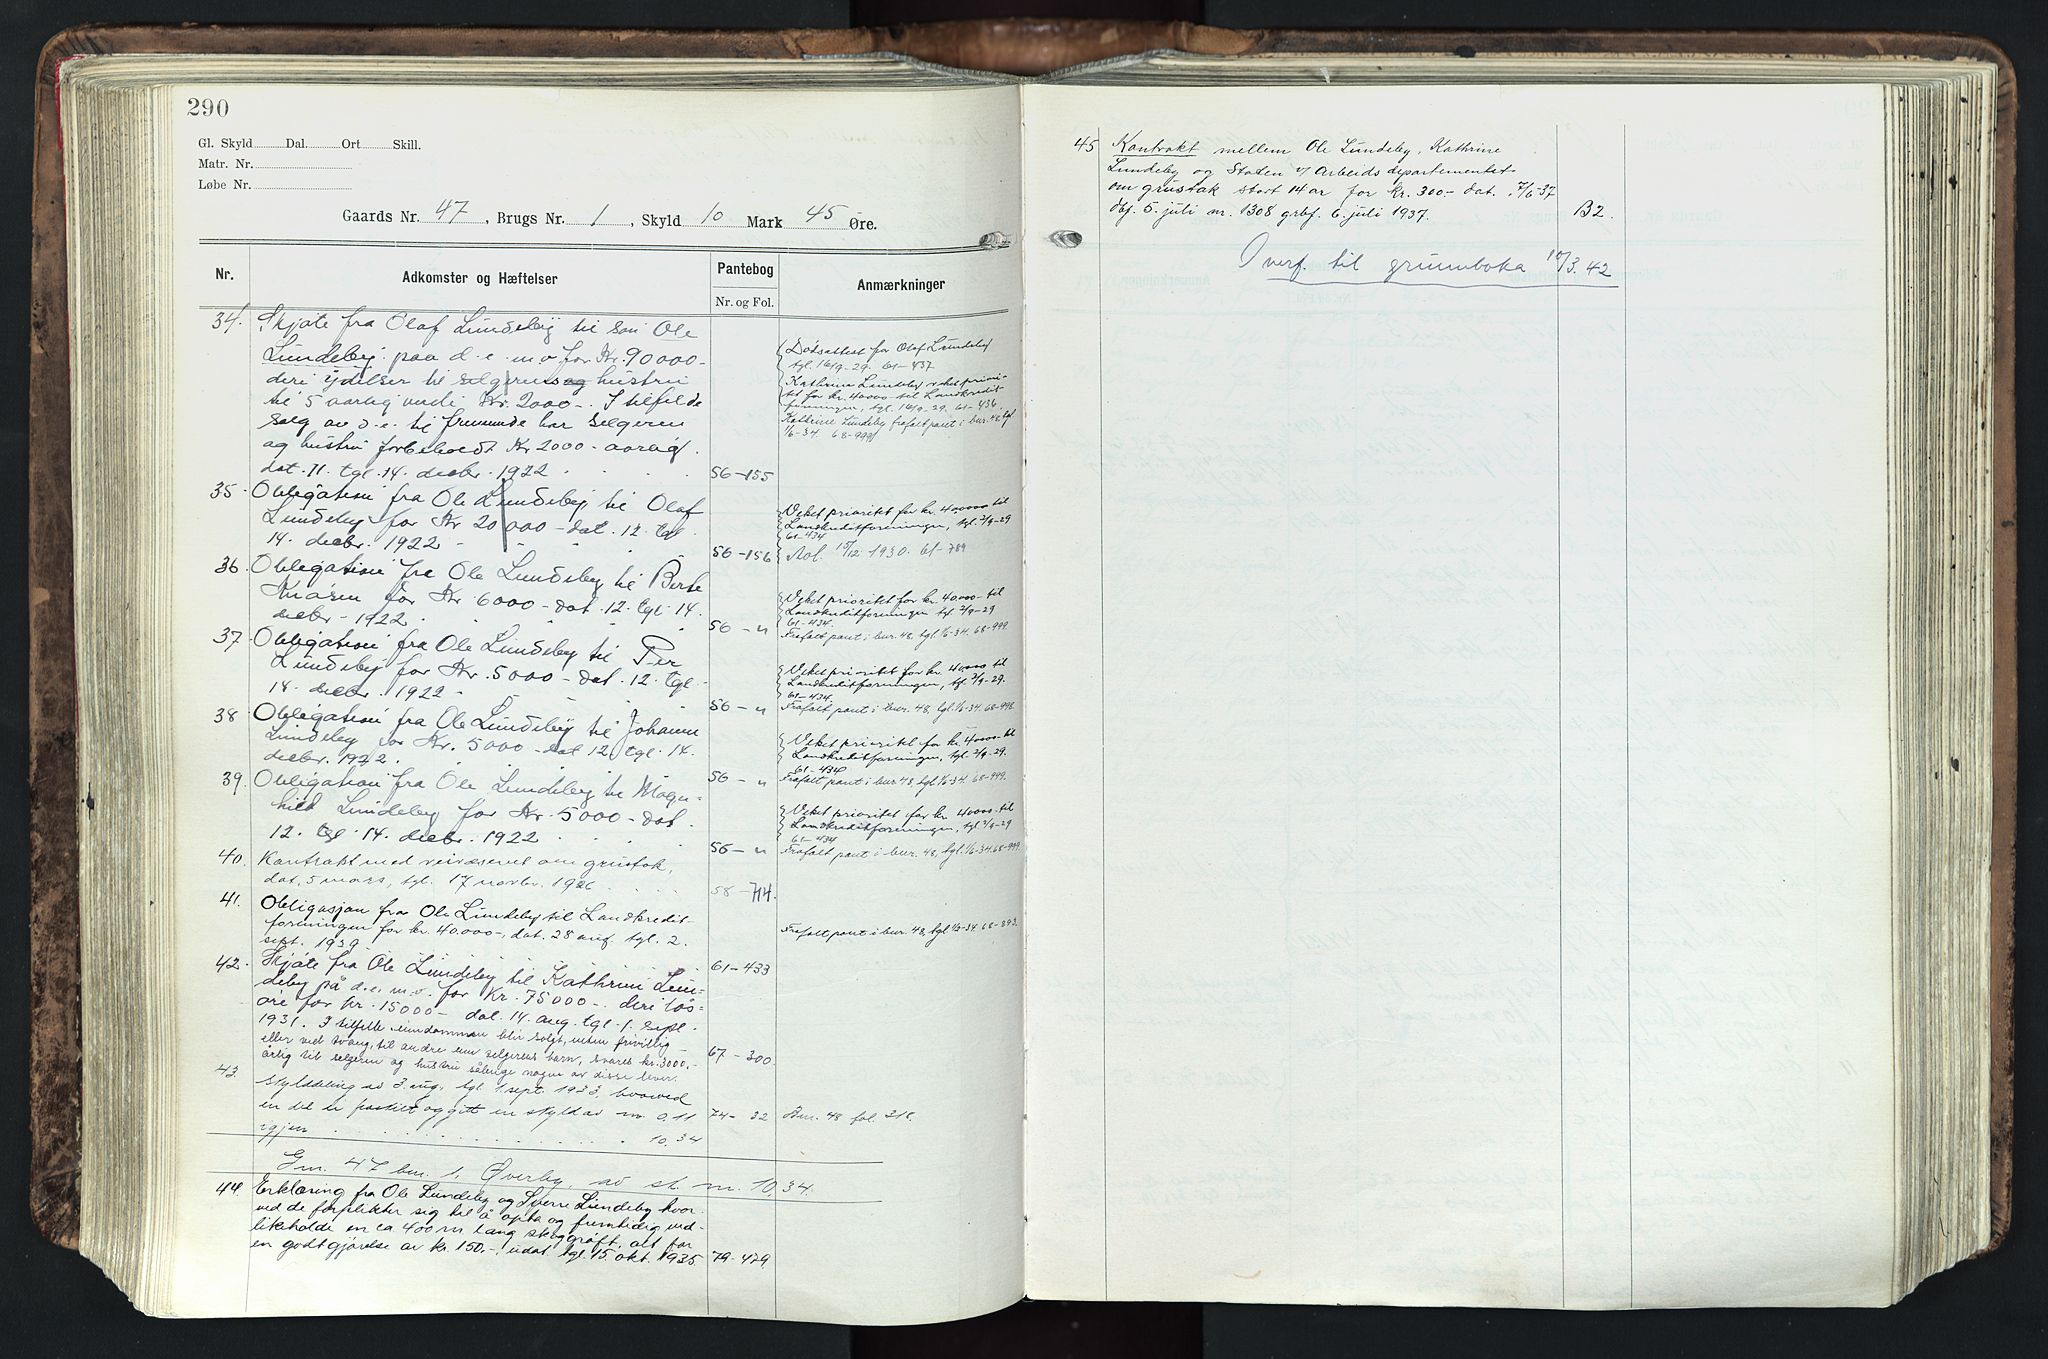 290
Gl. Skyld Dal. Ort Skill.
Matr. Nr.
Løbe Nr.
Gaards Nr. 47, Brugs Nr. 1, Skyld 10 Mark 45 Øre.
Nr. Adkomster og Hæftelser Pantebog Anmærkninger
Nr. og Fol.
34. Skjøte fra Olaf Lundeby til søn Ole
Lundeby paa d. e. m. v. for Kr. 90000-
deri ydelser til selgeren og hustru
til 5 aarlig verdi Kr. 2000-. I tilfelde
salg av d. e. til fremmede har selgeren
og hustru forbeholdt Kr 2000- aarlig.
dat. 11. tgl. 14. decbr. 1922 56-155
Dødsattest for Olaf Lundeby
tgl. 16/9-29. 61-437
Kathrine Lundeby veket priori-
tet for kr. 40000 til Landkredit-
foreningen, tgl. 16/9-29. 61-436
Kathrine Lundeby frafalt pant i bnr. 48 tgl.
1/6-34. 68-999
35. Obligation fra Ole Lundeby til Olaf
Lundeby for Kr 20000- dat. 12. tgl
14. decbr. 1922 56-156
Veket prioritet for kr. 40000 til
Landkreditforeningen, tgl. 2/9-29
61-434
Avl. 15/12 1930. 61-789
36. Obligation fra Ole Lundeby til Berte
for Kr 6000- dat. 12. tgl. 14.
decbr. 1922 56-"
Veket prioritet for kr. 40000- til
Landkreditforeningen tgl 2/9-29
61-434.
Frafalt pant i bnr. 48, tgl. 1/6-34. 68-999.
37. Obligation fra Ole Lundeby til Per
Lundeby for Kr. 5000- dat. 12. tgl.
14. decbr. 1922 56-"
Veket prioritet for kr. 40000 til
Landkreditforeningen, tgl. 2/9-29.
61-434.
Frafalt pant i bnr. 48, tgl. 1/6-34. 68-998.
38. Obligation fra Ole Lundeby til Johanne
Lundeby for Kr. 5000- dat 12. tgl. 14.
decbr. 1922. 56-"
Veket prioritet for kr. 40000- til
Landkreditforeningen, tgl. 2/9-29.
61-434
Frafalt pant i bnr 48, tgl 1/6-34. 68-999.
39. Obligation fra Ole Lundeby til Magn-
hild Lundeby for Kr. 5000- dat.
12. tgl 14. decbr. 1922 56-"
Veket prioritet for kr. 40000- til
Landkreditforeningen, tgl 2/9-29
61-434
Frafalt pant i bnr. 48, tgl. 1/6-34. 68-999.
40. Kontrakt med veivæsenet om grustak,
dat. 5 mars, tgl. 17 novbr. 1926 58-714.
41. Obligasjon fra Ole Lundeby til Landkredit-
foreningen for kr. 40.000-, dat. 28 aug. tgl. 2.
sept. 1929 61-433
Frafalt pant i bnr. 48, tgl 1/3-34. 68-893.
42. Skjøte fra Ole Lundeby til Kathrine Lun-
deby på d. e. m. v. for Kr. 75000-. deri løs-
øre for kr. 15000- dat. 14. aug. tgl. 1. sept.
1931. I tilfelle eiendommen blir solgt, enten frivillig
eller ved tvang, til andre enn selgerens barn, svares kr. 3000,-
årlig til selgeren og hustru sålenge nogen av disse lever. 67-300
43. Skylddeling av 3. aug. tgl 1. sept. 1933, hvorved
en del er fraskilt og gitt en skyld av m. 0.11 74-32 Bnr. 48 fol. 318.
igjen 10.34
Gnr. 47 bnr. 1. Øverby, av sk. m. 10,34.
44. Erklæring fra Ole Lundeby og Sverre Lundeby hvor-
ved de forplikter sig til å opta og fremtidig ved-
likeholde en ca 400 m lang skoggrøft, alt for
en godtgjørelse av kr. 150.-, udat. tgl. 15. okt. 1935 79-479.
45 Kontrakt mellem Ole Lundeby, Kathrine
Lundeby og Staden v/ Arbeidsdepartementet
om grustak stort 14 ar for kr. 300.- dat. 7/6-37
dbf. 5. juli nr. 1308 grbf. 6. juli 1937. B2.
Overf. til grunnboka 10/3.42